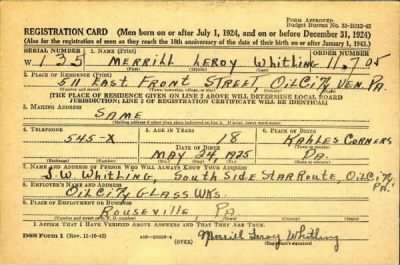 FORM APPROVED
Budget Bureau No. 33-R012-42
REGISTRATION CARD (Men born on or after July 1, 1924, and on or before December 31, 1924)
(Also for the registration of men as they reach the 18th anniversary of the date of their birth on or after January 1, 1943.)
SERIAL NUMBER 1. NAME (Print) ORDER NUMBER
W 135 Merrill Leroy Whitling 11,705
(First) (Middle) (Last)
2. PLACE OF RESIDENCE (Print)
511 East Front Street OilCity Ven. Pa
[THE PLACE OF RESIDENCE GIVEN ON LINE 2 ABOVE WILL DETERMINE LOCAL BOARD
JURISDICTION; LINE 2 OF REGISTRATION CERTIFICATE WILL BE IDENTICAL]
3. MAILING ADDRESS
Same
4. TELEPHONE 5. AGE IN YEARS 6. PLACE OF BIRTH
545-X 18 Kahles Corners
DATE OF BIRTH
May 24, 1925 Pa.
7. NAME AND ADDRESS OF PERSON WHO WILL ALWAYS KNOW YOUR ADDRESS
J.W. Whitling, South Side Star Route, OilCity Pa.
8. EMPLOYER'S NAME AND ADDRESS
OilCity Glass Wks.
9. PLACE OF EMPLOYMENT OR BUSINESS
Rouseville Pa
I AFFIRM THAT I HAVE VERIFIED ABOVE ANSWERS AND THAT THEY ARE TRUE.
DSS Form 1 (Rev. 11-16-42) (OVER) Merrill Leroy Whitling
(Registrant's signature)